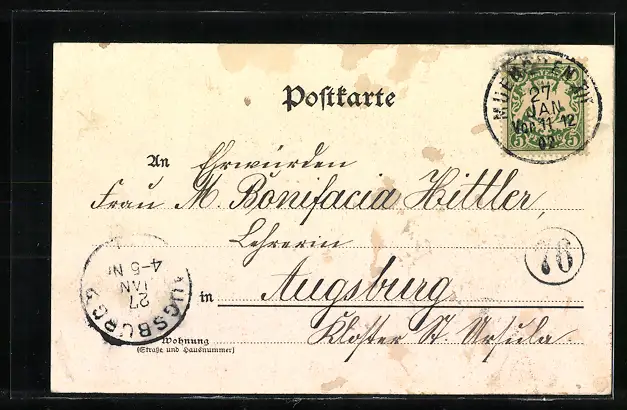 Postkarte
MUENCHEN
27
JAN
Vor. 11-12
02
5 5
An Ehrwürden
Frau M. Bonifacia Hittler,
Lehrerin
76
in Augsburg
Kloster St. Ursula.
Wohnung
(Straße und Hausnummer)
AUGSBURG
27
JAN
4-5 N